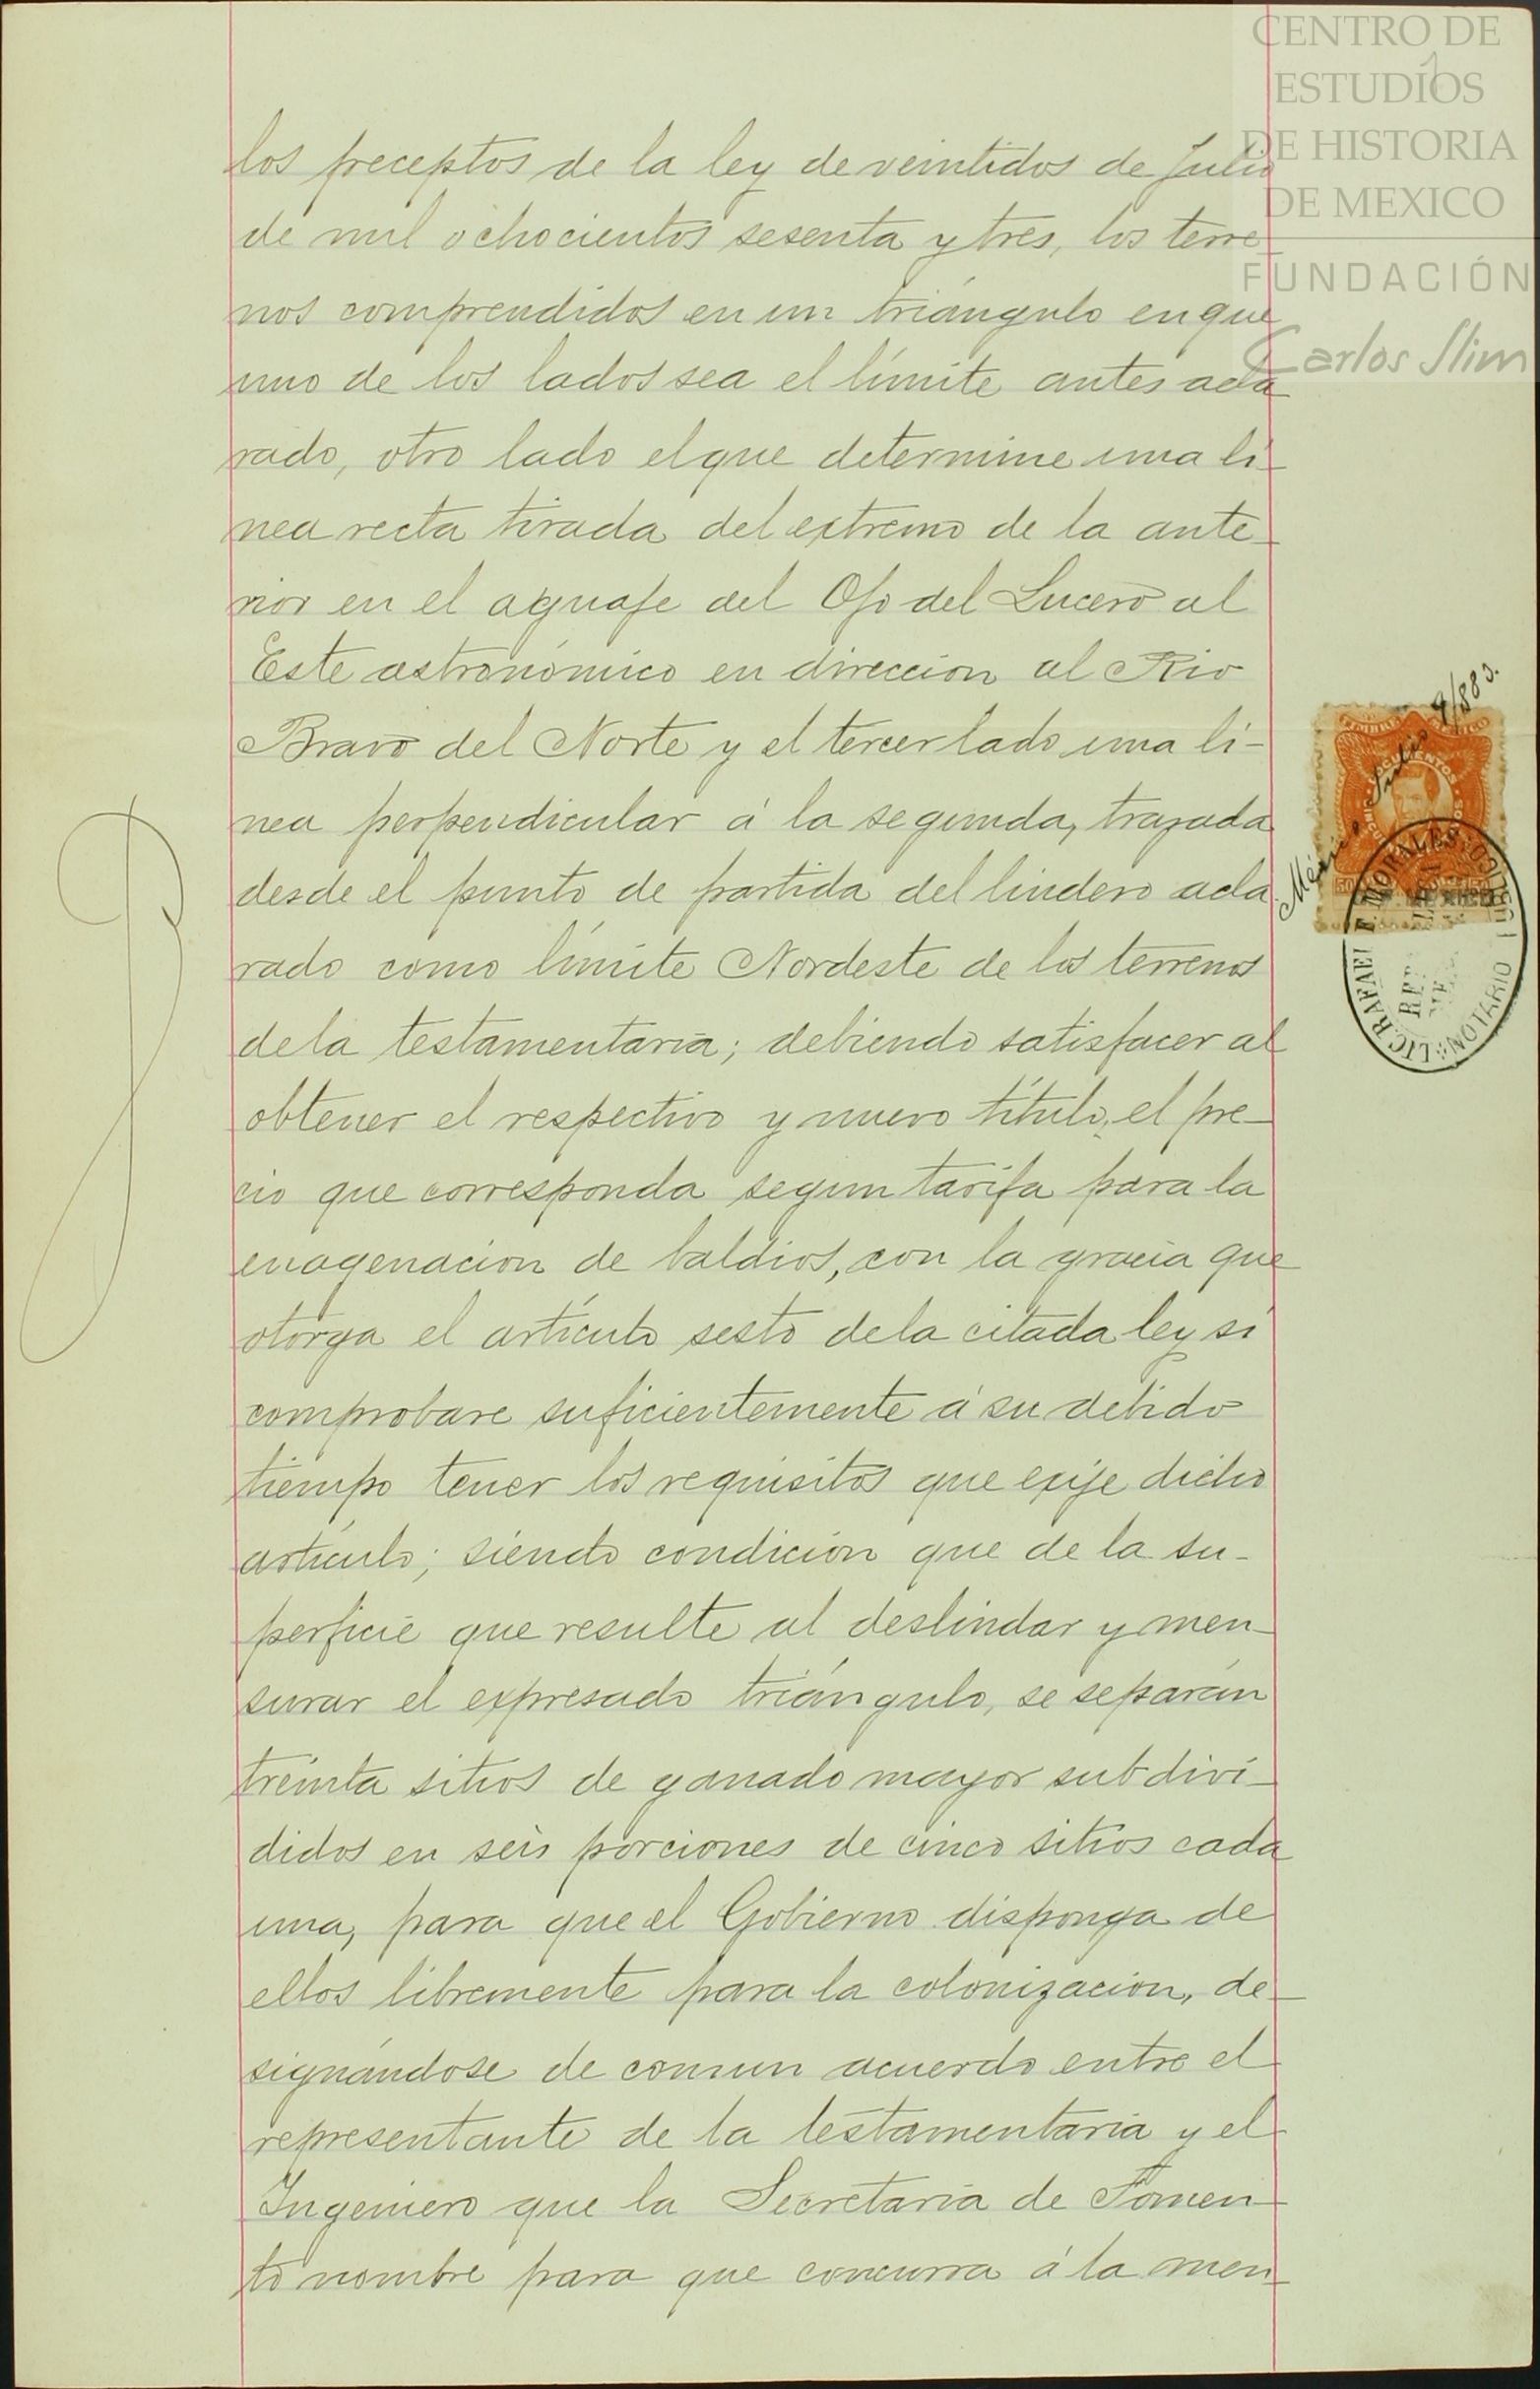 CENTRO DE
ESTUDIOS
DE HISTORIA
DE MEXICO
FUNDACIÓN
Carlos Slim
los preceptos de la ley de veintidos de Julio
de mil ochocientos sesenta y tres, los terre-
nos comprendidos en un triángulo en que
uno de los lados sea el límite antes acla
rado, otro lado el que determine una lí-
nea recta tirada del extremo de la ante-
rior en el aguaje del Ojo del Lucero al
Este astronómico en direccion al Rio
Bravo del Norte y el tercer lado una lí-
nea perpendicular á la segunda, trazada
desde el punto de partida del lindero acla
rado como límite Nordeste de los terrenos
de la testamentaría; debiendo satisfacer al
obtener el respectivo y nuevo título, el pre-
cio que corresponda segun tarifa para la
enagenacion de baldios, con la gracia que
otorga el artículo sesto de la citada ley si
comprobare suficientemente á su debido
tiempo tener los requisitos que exije dicho
artículo; siendo condición que de la su-
perficie que resulte al deslindar y men-
surar el expresado triángulo, se separán
treinta sitios de ganado mayor subdivi-
didos en seis porciones de cinco sitios cada
una, para que el Gobierno disponga de
ellos libremente para la colonizacion, de-
signándose de comun acuerdo entre el
representante de la testamentaría y el
Ingeniero que la Secretaría de Fomen-
to nombre para que concurra á la men-
México Julio 9/883.
LIC. RAFAEL MORALES
NOTARIO